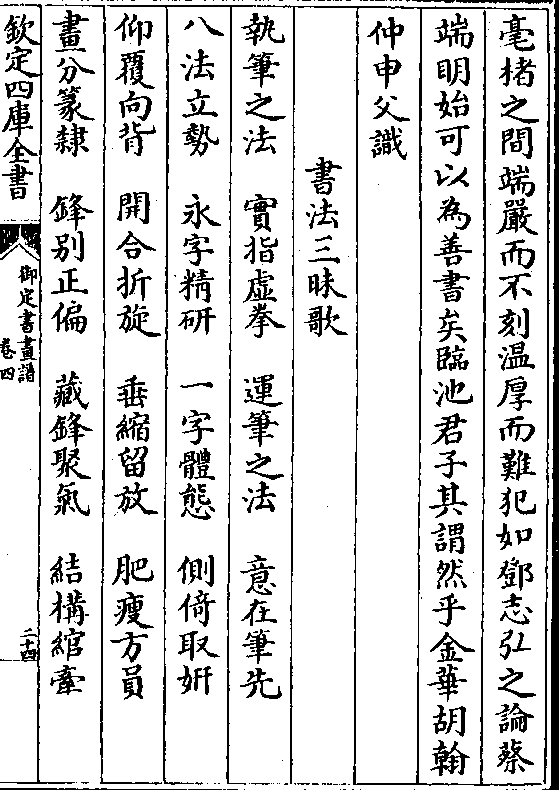 毫楮之間端嚴而不刻温厚而難犯如鄧志弘之論蔡
端明始可以為善書矣臨池君子其謂然乎金華胡翰
仲申父識
書法三昧歌
執筆之法 實指虚拳 運筆之法 意在筆先
八法立勢 永字精研 一字體態 側倚取妍
仰覆向背 開合折旋 垂縮留放 肥瘦方員
畫分篆隸 鋒別正偏 藏鋒聚氣 結構綰牽
欽定四庫全書
御定書畫譜
卷四
二十四